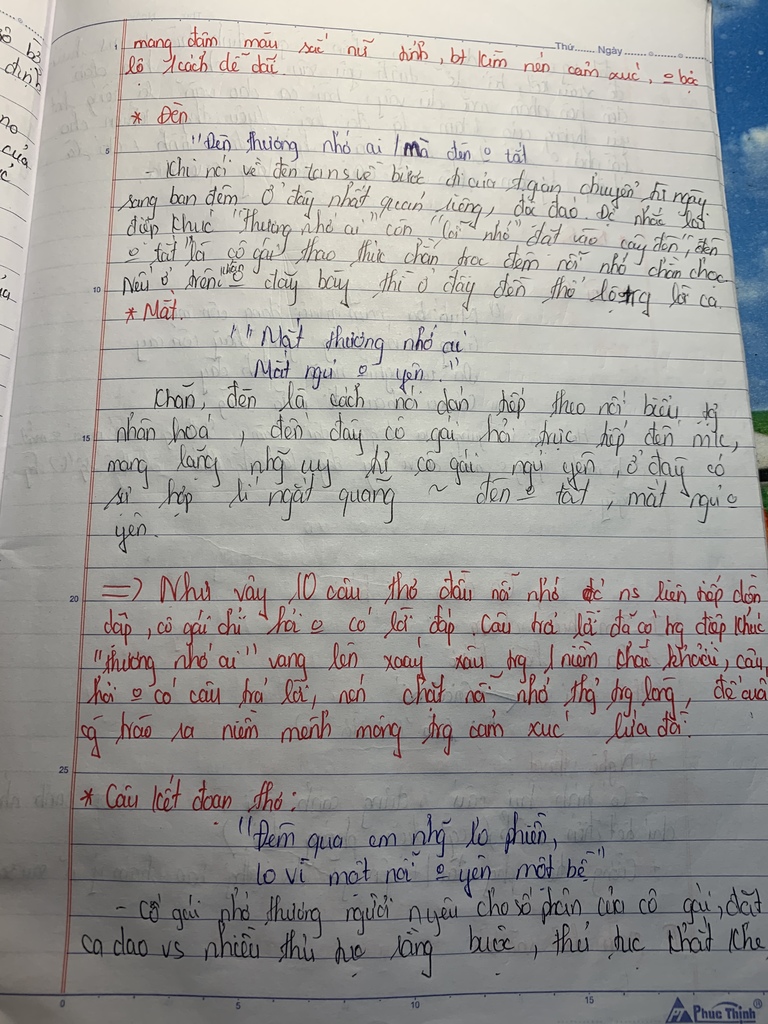 Thứ...... Ngày
mang đậm màu sắc nữ tính, bt kìm nén cảm xúc, o bộc
lộ 1 cách dễ dãi
* Đèn
5
"Đèn thương nhớ ai / mà đèn o tắt
- Khi nói về đèn ta ns về bước đi của t.gian chuyển từ ngày
sang ban đêm. Ở đây nhất quán, đối đáp để nhắc lại
điệp khúc "thương nhớ ai" còn "nhớ" đặt vào cây đèn, "đèn
o tắt" là cô gái thao thức chằn trọc đêm nỗi nhớ chằn chọc
10
Nếu ở trên khăn o dãy bày thì ở đây đèn thổ lộ lời ca
* Mắt.
" " Mắt thương nhớ ai
Mắt ngủ o yên ."
Khăn, đèn là cách nói gián tiếp theo nối biểu tg
15
nhân hoá, đến đây cô gái hỏi trực tiếp đến mắt,
mang lặng cô gái ngủ yên, ở đây có
sự hợp lí quãng ~ đèn o tắt, mắt ngủ o
yên.
20
=> Như vậy 10 câu thơ đầu nỗi nhớ đc ns liên tiếp dồn
dập, cô gái chỉ hỏi o có lời đáp. Câu trả lời đã có trg điệp khúc
"thương nhớ ai" vang lên xoáy xâu trg 1 niềm khắc khoải, câu
hỏi o có câu trả lời, nén chặt nỗi nhớ trg lòng, để cuối
cg trào ra niềm mênh mông trg cảm xúc lứa đôi.
25
* Câu kết đoạn thơ:
"Đêm qua em những lo phiền,
lo vì một nỗi o yên một bề"
- Cô gái nhớ thương người n yêu cho số phận của cô gái, đặt
ca dao vs nhiều thủ tục ràng buộc, thủ tục khắt khe
0 5 10 15
Phúc Thịnh ®